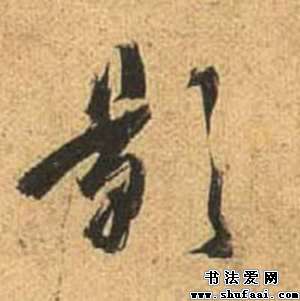 影
书法爱网
www.shufaai.com